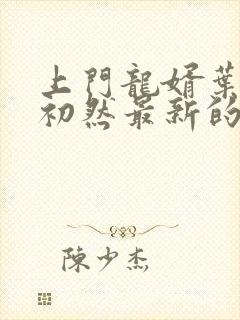 上門龍婿葉
初然最新的
陳少杰